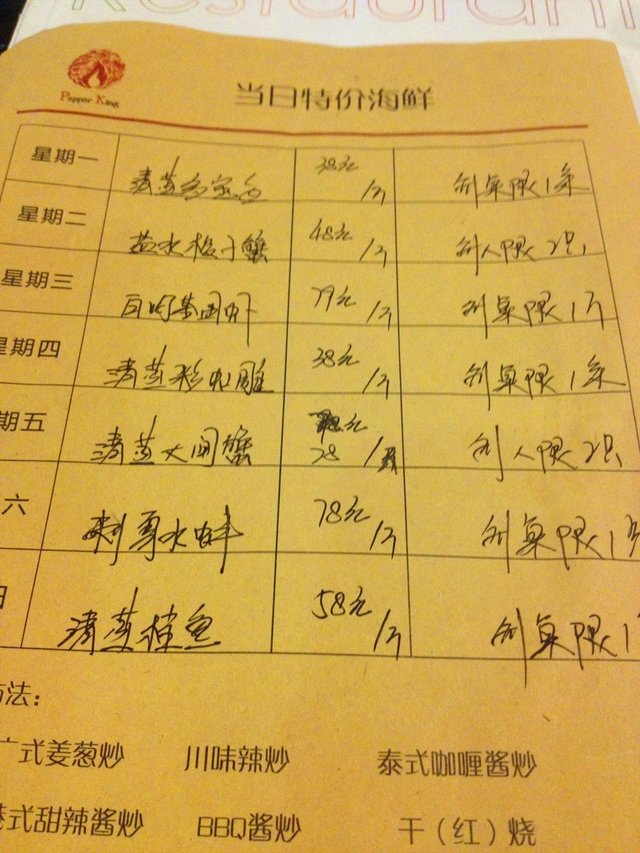 Restaurant
Pepper King
当日特价海鲜
星期一 清蒸多宝鱼 38元/斤 例桌限1条
星期二 盐水梭子蟹 48元/斤 例人限2只
星期三 白灼基围虾 79元/斤 例桌限1斤
星期四 清蒸 38元/斤 例桌限1条
期五 清蒸大闸蟹 28 例人限2只
六 刺身 78元/斤 例桌限1
日 清蒸 鱼 58元/斤 例桌限1
法：
广式姜葱炒 川味辣炒 泰式咖喱酱炒
港式甜辣酱炒 BBQ酱炒 干（红）烧